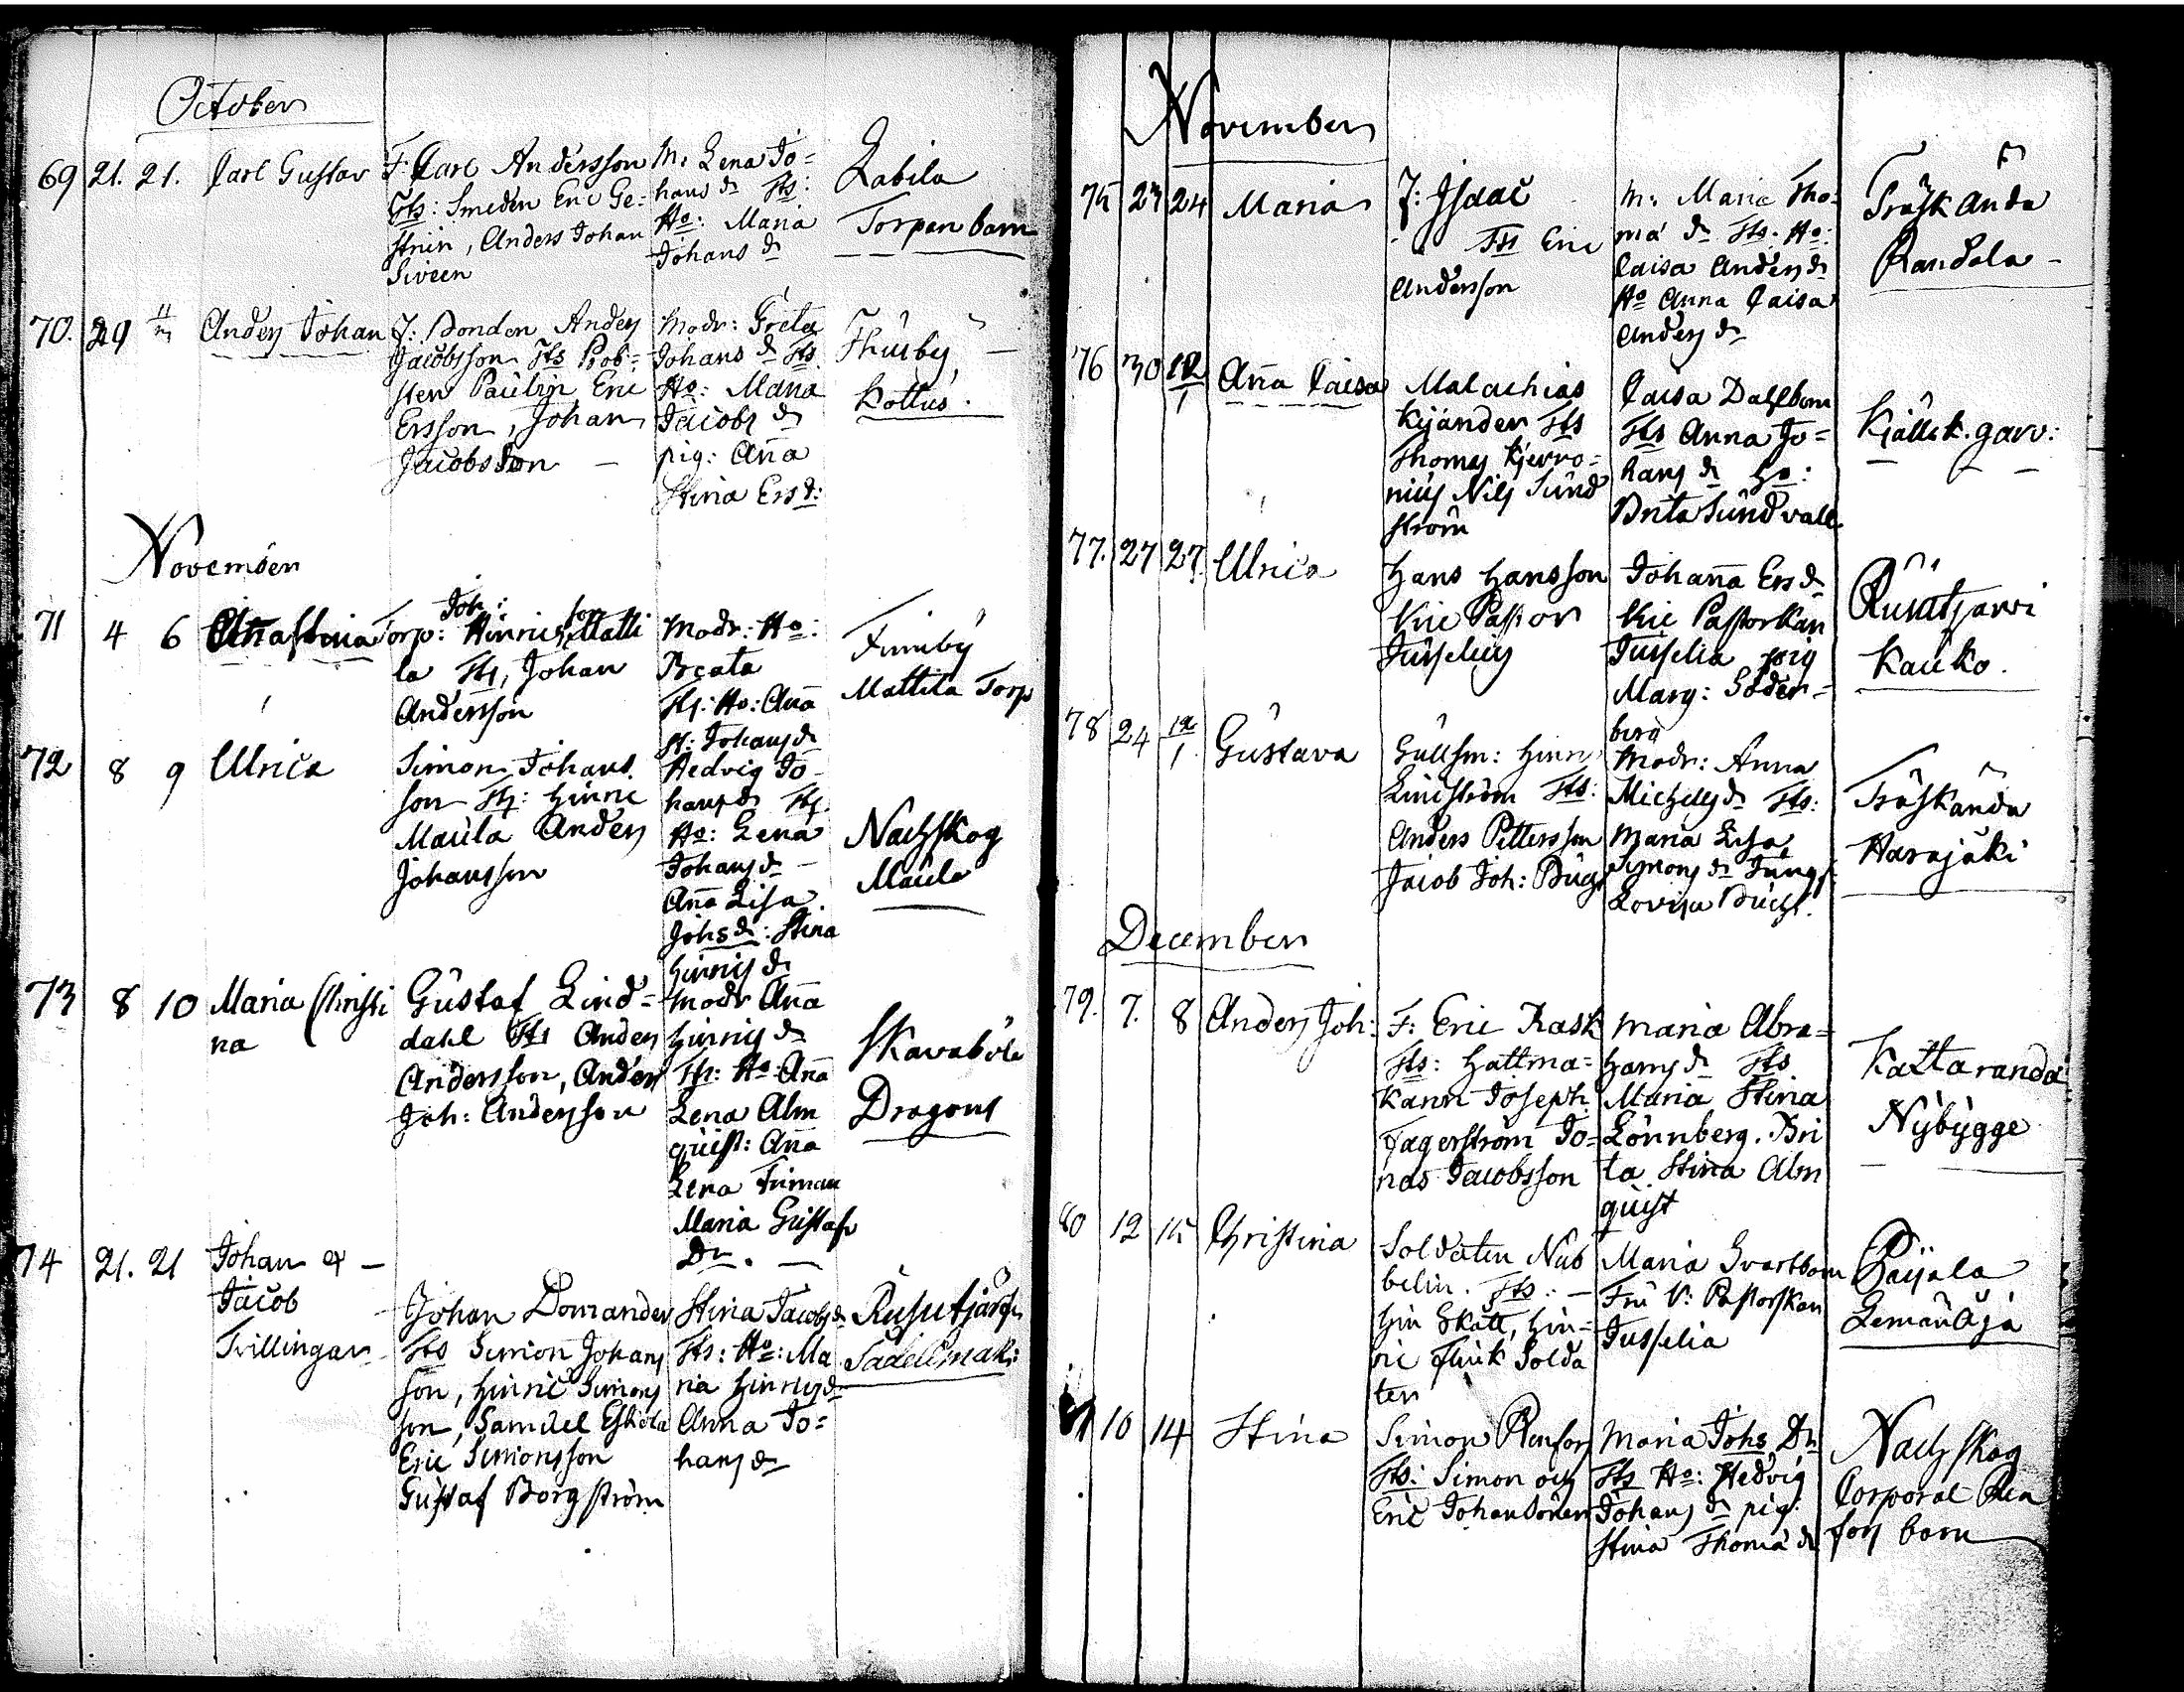 October
69 21. 21. Carl Gustav F: Carl Andersson M: Lena Jo=
Fts: Smeden Eric Ge= hans dr Fts:
, Anders Johan Ho: Maria
Siveen Johans dr
Labila
Torpan barn
70. 29 Anders Johan F: Bonden Anders Modr: Greta
Jacobsson Fts Prob= Johans dr Fts
sten Paulin, Eric Ho: Maria
Ersson, Johan Jacobs dr
Jacobsson — pig: Anna
Stina Ers d:
Thusby —
Kottus.
November
71 4 6 Torp: Joh: Hinrichsson Matti
la Fts, Johan
Andersson
Modr: Ho:
Beata
Fts: Ho: Anna
St: Johans dr
Finnby
Mattila Torp
72 8 9 Ulrica Simon Johans
son Fts: Hinric
Maula Anders
Johansson
Hedvig Jo
hans dr Fts:
Ho: Lena
Johans dr —
Anna Lisa
Johs dr: Stina
Hinrics dr
Nachskog
Maula
73 8 10 Maria Christi
na
Gustaf Lind=
dahl Fts Anders
Andersson, Anders
Joh: Andersson
Modr Anna
Hinrics dr
Fts: Ho: Anna
Lena Alm
quist: Anna
Lena Friman
Maria Gustafs
Dr. —
Skavaböle
Dragons
74 21. 21 Johan & —
Jacob
Tvillingar
Johan Domander
Fts Simon Johans
son, Hinric Simons
son, Samuel Eskola
Eric Simonsson
Gustaf Borgström
Stina Jacobs dr
Fts: Ho: Ma
ria Hinrics dr
Anna Jo=
hans dr
Rusutjärfvi
Sadelimaki
November
75 23 24 Maria F: Isaac
Fts Eric
Andersson
M: Maria Tho=
mæ dr Fts: Ho:
Caisa Anders dr
Ho Anna Caisa
Anders dr
Träskända
Randala —
76 30 12/1 Anna Caisa Malachias
Kijander Fts
Thomas Kjerro=
nius Nils Sund
ström
Caisa Dahlbom
Fts Anna Jo=
hans dr Ho:
Brita Sundvall
Kjällsk. garv:
77. 27 27. Ulrica Hans Hansson
Vic Pastor
Jusselius
Johanna Ers dr
Vic Pastorskan
Jusselia pig
Marg: Söder=
berg
Rusutjärvi
Kauko.
78 24 12/1 Gustava Gullsm: Hinr
Lindström Fts:
Anders Pettersson
Jacob Joh: Bucht
Modr: Anna
Michels dr Fts:
Maria Lisa
Simons dr Jungf
Lovisa Bucht.
Träskända
Harajaki
December
79. 7. 8 Anders Joh: F: Eric Rask
Fts: Hattma=
kann Joseph
Fagerström Jo=
nas Jacobsson
Maria Abra=
hams dr Fts
Maria Stina
Lönnberg. Bri
ta Stina Alm
quist
Kattaranda
Nybygge
80 12 15 Christina Soldaten Nub
belin. Fts: —
Hin Skatt, Hin=
ric Flink Solda
ten
Maria Svartbom
Fru V: Pastorskan
Jusselia
Paijala
Lemanäja
81 10 14 Stina Simon Renfors
Fts: Simon och
Eric Johansöner
Maria Johs Dr
Fts Ho: Hedvig
Johans dr pig:
Stina Thomæ dr
Nachskog
Corporal Ren
fors barn